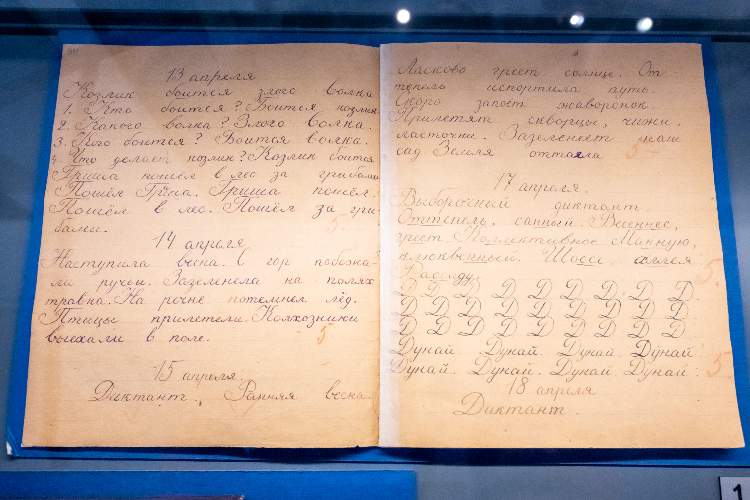 13 апреля
Козлик боится злого волка
1. Кто боится? Боится козлик
2. Какого волка? Злого волка.
3. Кого боится? Боится волка.
4. Что делает козлик? Козлик боится
Гриша пошёл в лес за грибами
Пошёл Гриша. Гриша пошёл.
Пошёл в лес. Пошёл за гри-
бами.
5
14 апреля
Наступила весна. С гор побежа-
ли ручьи. Зазеленела на полях
травка. На речке потемнел лёд.
Птицы прилетели. Колхозники
выехали в поле.
5
15 апреля.
Диктант. Ранняя весна.
Ласково греет солнце. От-
тепель испортила путь.
Скоро запоёт жаворонок.
Прилетят скворцы, чижи
ласточки. Зазеленеет наш
сад Земля оттаяла
5
17 апреля.
Выборочный диктант.
Оттепель, санный. Весеннее,
греет Коллективное
клюквенный. Шоссе, аллея
Рассаду.
5
Д Д Д Д Д Д Д Д Д
Д Д Д Д Д Д Д Д Д
Д Д Д Д Д Д Д Д Д
Дунай. Дунай. Дунай. Дунай.
Дунай. Дунай. Дунай Дунай.
5
18 апреля
Диктант.
1